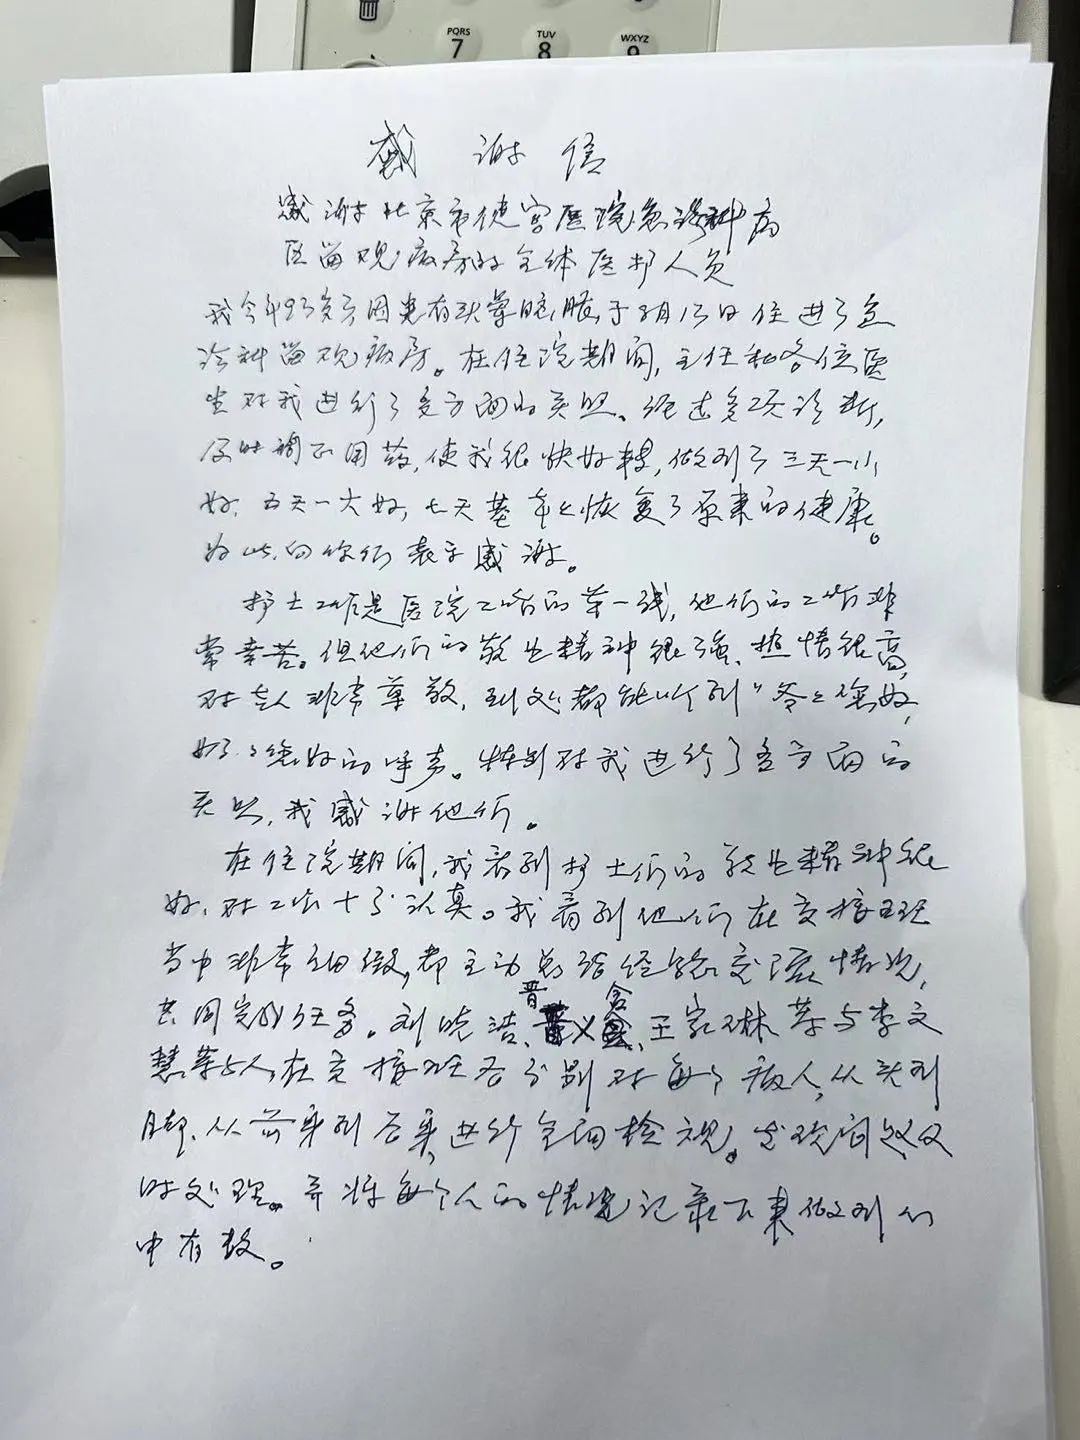 PQRS
7
TUV
8
WXYZ
9
感谢信
感谢北京市健宫医院急诊科病
区留观病房的全体医护人员
我今年93岁了因患有头晕腿胀于8月13日住进了急
诊科留观病房。在住院期间,主任和各位医
生对我进行了多方面的关照、经过多项诊断,
及时调正用药,使我很快好转,做到了三天一小
好、五天一大好,七天基本上恢复了原来的健康。
为此,向你们表示感谢。
护士工作是医院工作的第一线,他们的工作非
常辛苦。但他们的敬业精神很强、热情很高,
对老人非常尊敬,到处都能听到"爷爷您好,
奶奶您好的呼声。特别对我进行了多方面的
关照,我感谢他们。
在住院期间,我看到护士们的敬业精神很
好,对工作十分认真。我看到他们在交接班
当中非常细微,都主动总结经验交流情况,
共同完成任务。刘晓洁、晋义含、王家琳等与李文
慧等5人,在交接班后分别对每个病人,从头到
脚、从前身到后身进行全面检视。发现问题及
时处理。并将每个人的情况记录下来做到心
中有数。